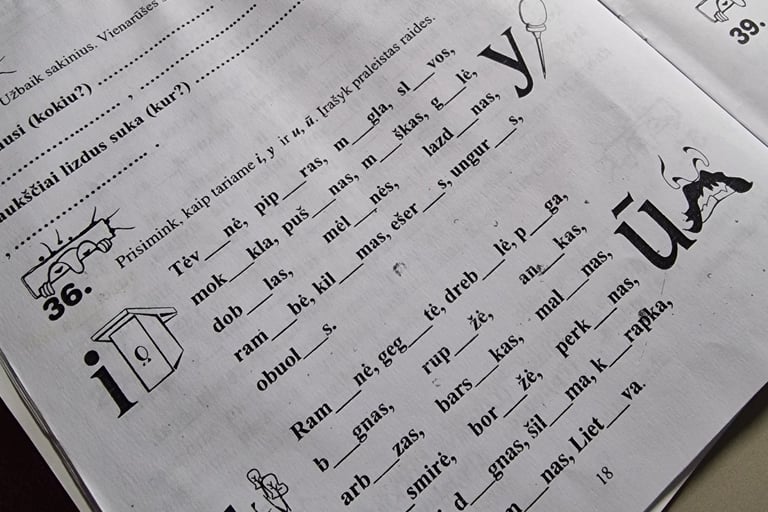 Užbaik sakinius. Vienarūšes
usi (kokiu?) ..............................
.............................. , ..............................
aukščiai lizdus suka (kur?) ..............................
, .............................. .
39.
36.
Prisimink, kaip tariame i, y ir u, ū. Įrašyk praleistas raides.
Tėv__nė, pip__ras, m__gla, sl__vos,
mok__kla, puš__nas, m__škas, g__lė,
dob__las, mėl__nės, lazd__nas,
ram__bė, kil__mas, ešer__s, ungur__s,
obuol__s.
y
i
ū
Ram__nė, geg__tė, dreb__lė, p__ga,
b__gnas, rup__žė, an__kas,
arb__zas, bars__kas, mal__nas,
smirė, bor__žė, perk__nas,
d__gnas, šil__ma, k__rapka,
__nas, Liet__va.
18